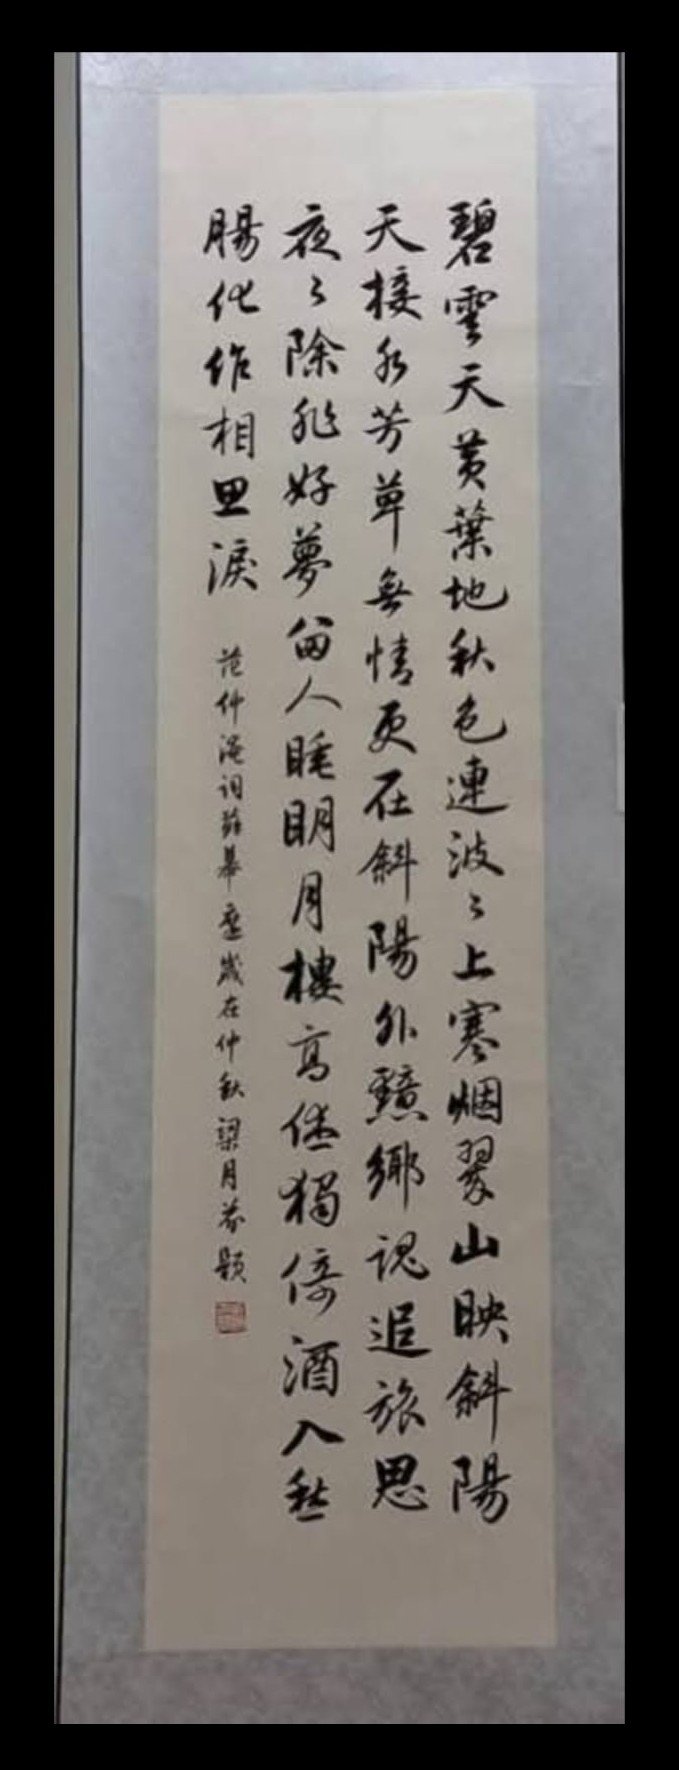 碧雲天黃葉地秋色連波〻上寒烟翠山映斜陽
天接水芳草無情更在斜陽外黯鄉魂追旅思
夜〻除非好夢留人睡明月樓高休獨倚酒入愁
腸化作相思淚
范仲淹詞蘇幕遮歲在仲秋梁月芬題